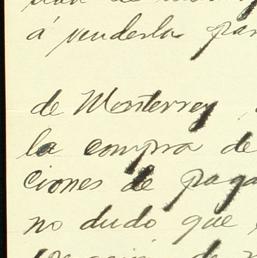 á venderla par
de Monterrey,
la compra de
ciones de paga
no dudo que